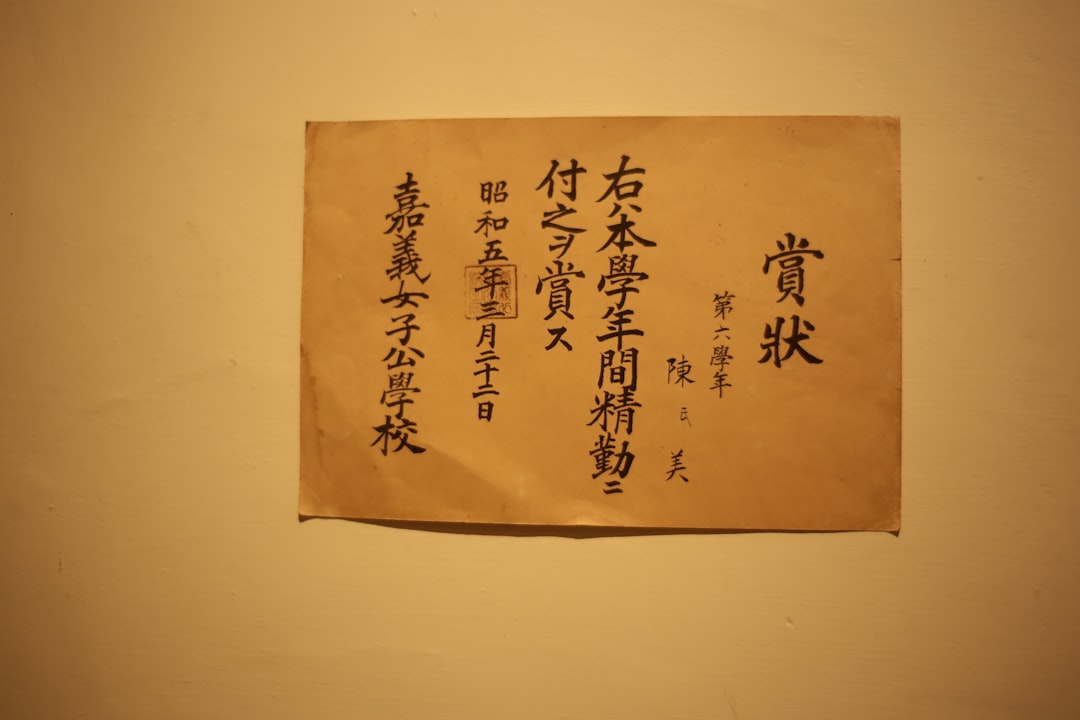 賞狀
第六學年
陳氏美
右ハ本學年間精勤ニ
付之ヲ賞ス
昭和五年三月二十二日
嘉義女子公學校